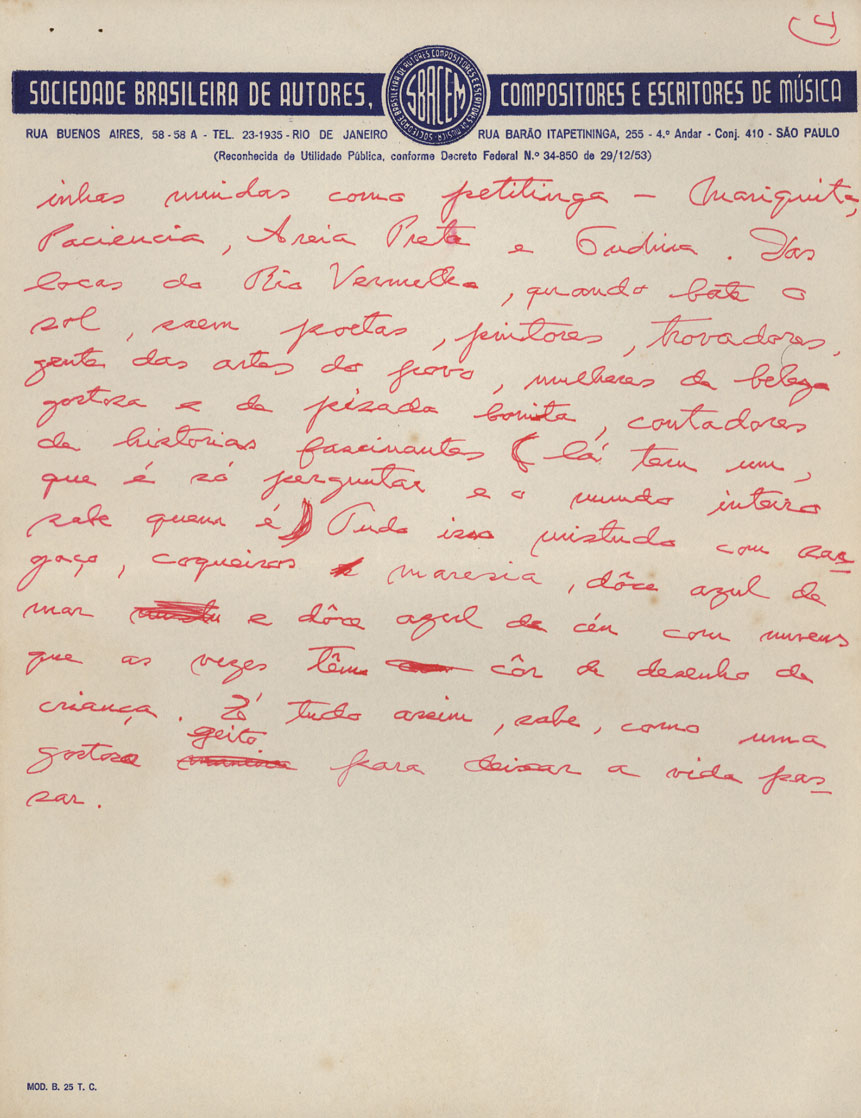 4
SOCIEDADE BRASILEIRA DE AUTORES, COMPOSITORES E ESCRITORES DE MÚSICA
SBACEM
RUA BUENOS AIRES, 58-58 A - TEL. 23-1935 - RIO DE JANEIRO RUA BARÃO ITAPETININGA, 255 - 4.º Andar - Conj. 410 - SÃO PAULO
(Reconhecida de Utilidade Pública, conforme Decreto Federal N.º 34-850 de 29/12/53)
inhas miudas como petitinga — Mariquita,
Paciencia, Areia Preta e . Das
locas do Rio Vermelho, quando bate o
sol, saem poetas, pintores, trovadores,
gente das artes do povo, mulheres de beleza
gostosa e de pisada bonita, contadores
de historias fascinantes (lá tem um,
que é só perguntar e o mundo inteiro
sabe quem é) Tudo isso mistudo com sar
gaço, coqueiros maresia, dôce azul de
mar e dôce azul de céu com nuvens
que as vezes têm côr de desenho de
criança. É tudo assim, sabe, como uma
geito
gostoso para deixar a vida pas
sar.
MOD. B. 25 T. C.